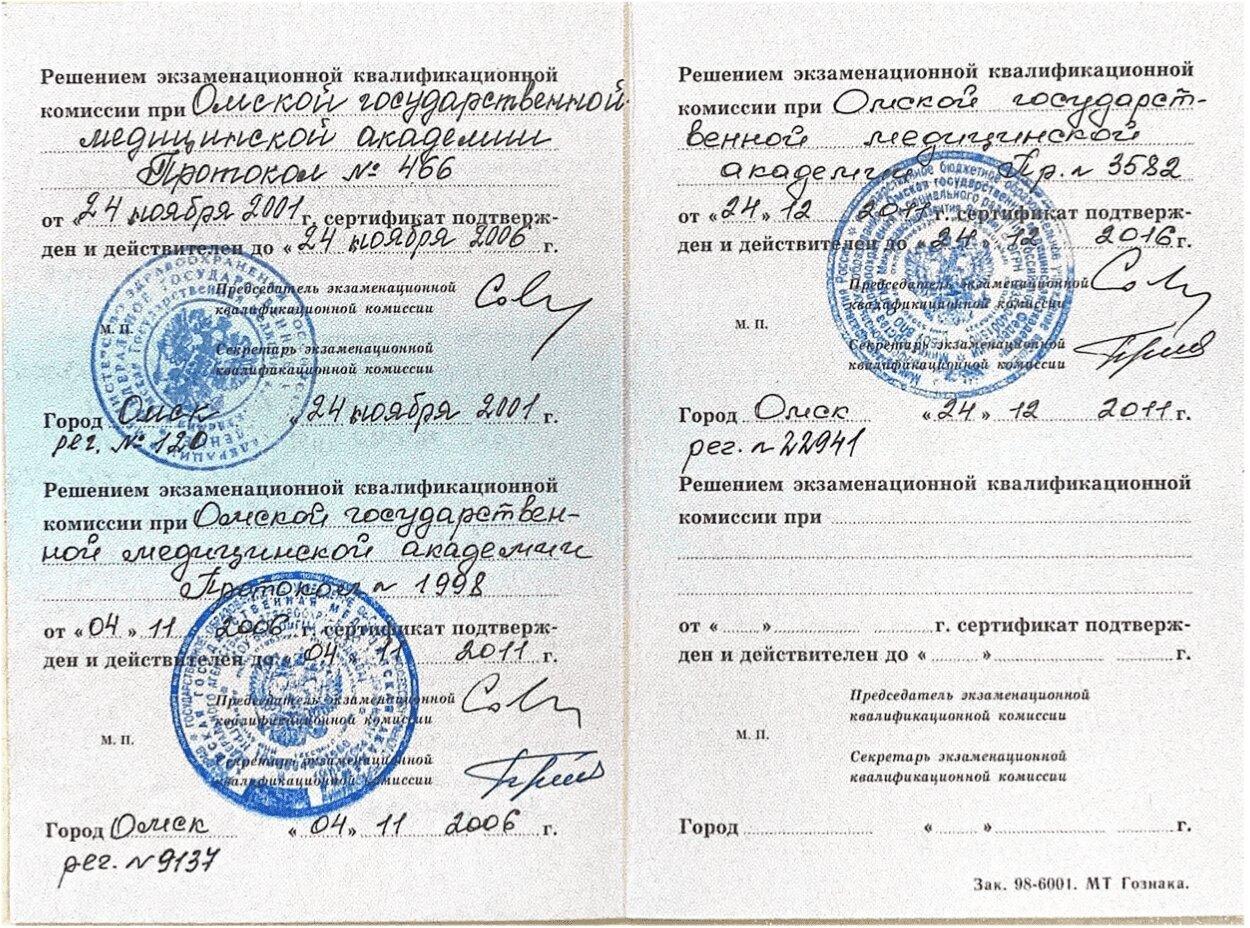 Решением экзаменационной квалификационной
комиссии при Омской государственной
медицинской академии
Протокол № 466
от «24 ноября 2001 г. сертификат подтверж-
ден и действителен до «24 ноября 2006 г.
Председатель экзаменационной
квалификационной комиссии
М. П.
Секретарь экзаменационной
квалификационной комиссии
Город Омск «24 ноября 2001 г.
рег. № 120
Решением экзаменационной квалификационной
комиссии при Омской государствен-
ной медицинской академии
Протокол № 1998
от «04» 11 2006 г. сертификат подтверж-
ден и действителен до «04» 11 2011 г.
Председатель экзаменационной
квалификационной комиссии
М. П.
Секретарь экзаменационной
квалификационной комиссии
Город Омск «04» 11 2006 г.
рег. № 9137
Решением экзаменационной квалификационной
комиссии при Омской государст-
венной медицинской
академии Пр. № 3582
от «24» 12 2011 г. сертификат подтверж-
ден и действителен до «24» 12 2016 г.
Председатель экзаменационной
квалификационной комиссии
М. П.
Секретарь экзаменационной
квалификационной комиссии
Город Омск «24» 12 2011 г.
рег. № 22941
Решением экзаменационной квалификационной
комиссии при
от « » г. сертификат подтверж-
ден и действителен до « » г.
Председатель экзаменационной
квалификационной комиссии
М. П.
Секретарь экзаменационной
квалификационной комиссии
Город « » г.
Зак. 98-6001. МТ Гознака.